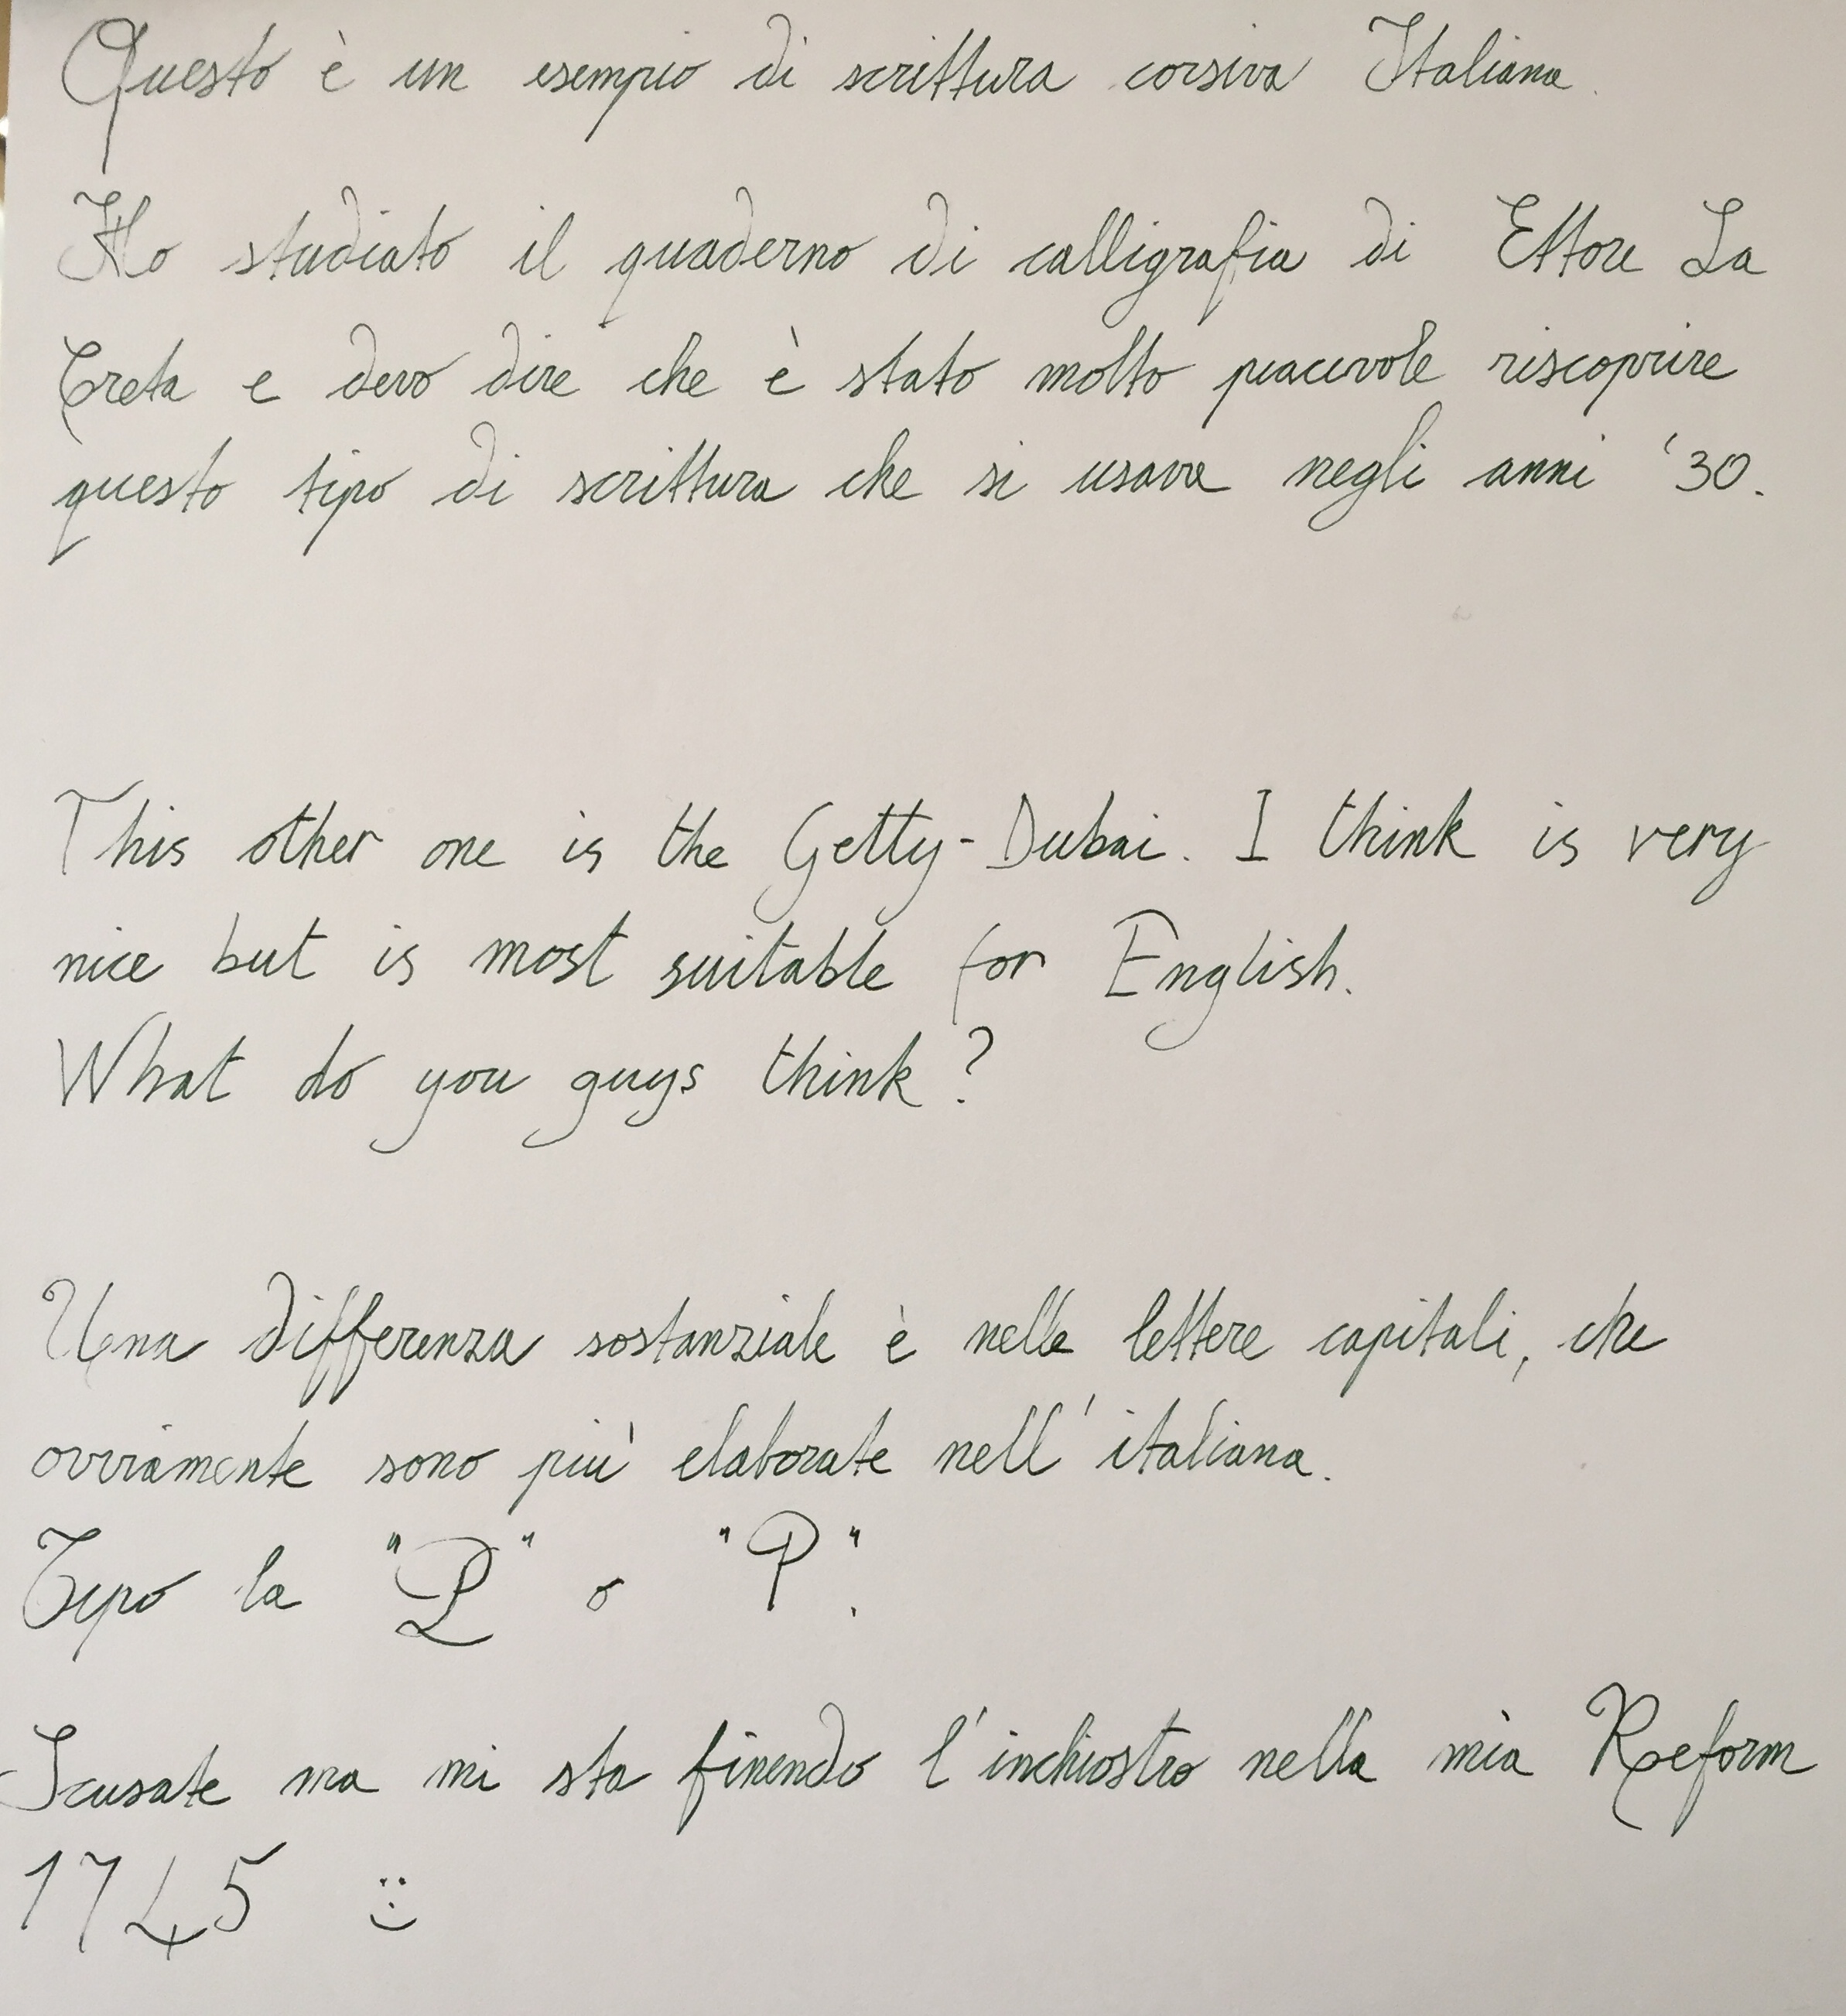 Questo è un esempio di scrittura corsiva Italiana.
Ho studiato il quaderno di calligrafia di Ettore La
Creta e devo dire che è stato molto piacevole riscoprire
questo tipo di scrittura che si usava negli anni '30.
This other one is the Getty-Dubai. I think is very
nice but is most suitable for English.
What do you guys think?
Una differenza sostanziale è nelle lettere capitali, che
ovviamente sono più elaborate nell'italiana.
Tipo la "P" o "P".
Scusate ma mi sta finendo l'inchiostro nella mia Reform
1745 :)